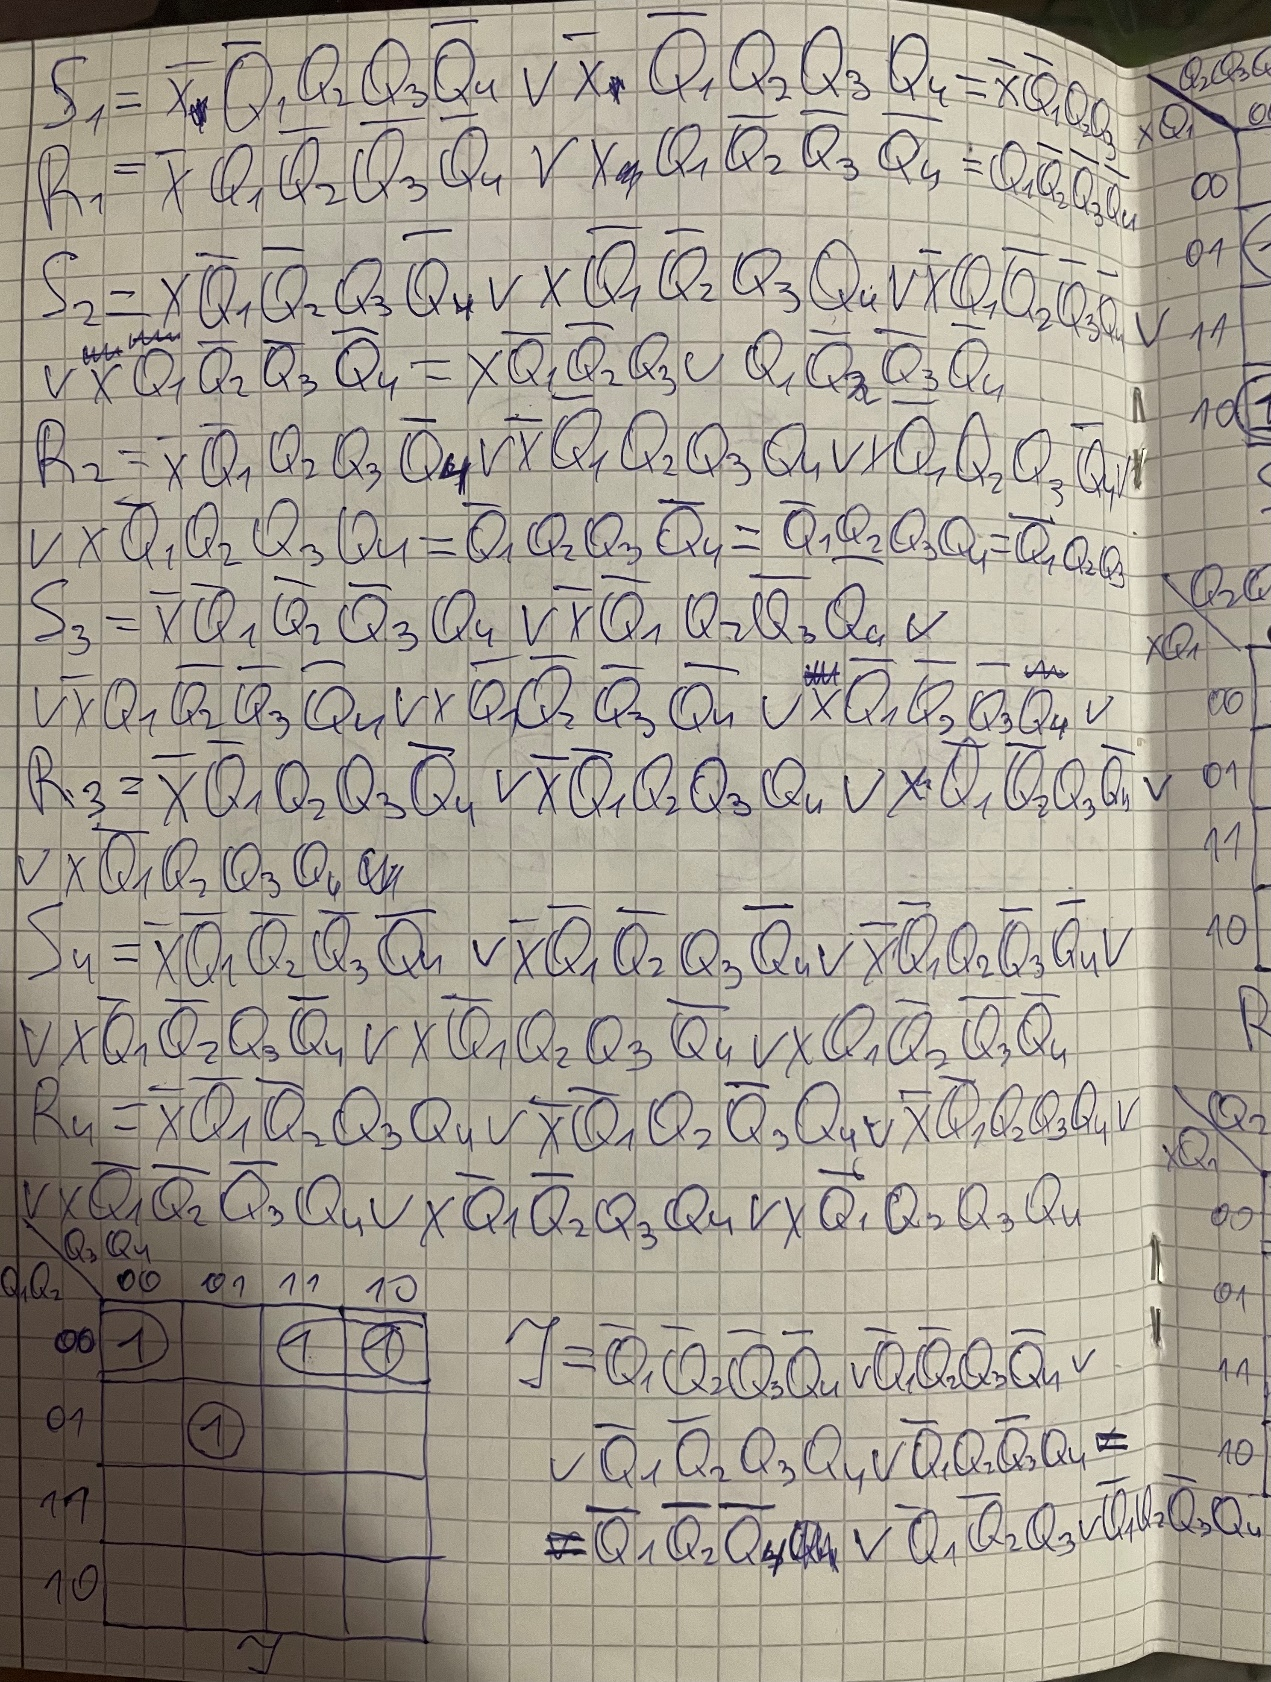 S₁ = x̄ Q̄₁ Q₂ Q₃ Q̄₄ ∨ x̄ Q̄₁ Q₂ Q₃ Q₄ = x̄ Q̄₁ Q₂ Q₃
R₁ = x̄ Q₁ Q̄₂ Q̄₃ Q̄₄ ∨ x Q₁ Q̄₂ Q̄₃ Q̄₄ = Q₁ Q̄₂ Q̄₃ Q̄₄
S₂ = x Q̄₁ Q̄₂ Q₃ Q̄₄ ∨ x Q̄₁ Q̄₂ Q₃ Q₄ ∨ x̄ Q₁ Q̄₂ Q̄₃ Q̄₄ ∨
∨ x Q₁ Q̄₂ Q̄₃ Q̄₄ = x Q̄₁ Q̄₂ Q₃ ∨ Q₁ Q̄₂ Q̄₃ Q̄₄
R₂ = x̄ Q̄₁ Q₂ Q₃ Q̄₄ ∨ x̄ Q̄₁ Q₂ Q₃ Q₄ ∨ x Q̄₁ Q₂ Q₃ Q̄₄ ∨
∨ x Q̄₁ Q₂ Q₃ Q₄ = Q̄₁ Q₂ Q₃ Q̄₄ = Q̄₁ Q₂ Q₃ Q₄ = Q̄₁ Q₂ Q₃
S₃ = x̄ Q̄₁ Q̄₂ Q̄₃ Q₄ ∨ x̄ Q̄₁ Q₂ Q̄₃ Q₄ ∨
∨ x̄ Q₁ Q̄₂ Q̄₃ Q̄₄ ∨ x Q̄₁ Q̄₂ Q̄₃ Q̄₄ ∨ x Q̄₁ Q̄₂ Q̄₃ Q₄ ∨
R₃ = x̄ Q̄₁ Q₂ Q₃ Q̄₄ ∨ x̄ Q̄₁ Q₂ Q₃ Q₄ ∨ x Q̄₁ Q̄₂ Q₃ Q̄₄ ∨
∨ x Q̄₁ Q₂ Q₃ Q₄
S₄ = x̄ Q̄₁ Q̄₂ Q̄₃ Q̄₄ ∨ x̄ Q̄₁ Q̄₂ Q₃ Q̄₄ ∨ x̄ Q̄₁ Q₂ Q̄₃ Q̄₄ ∨
∨ x Q̄₁ Q̄₂ Q₃ Q̄₄ ∨ x Q̄₁ Q₂ Q₃ Q̄₄ ∨ x Q₁ Q̄₂ Q̄₃ Q̄₄
R₄ = x̄ Q̄₁ Q̄₂ Q₃ Q₄ ∨ x̄ Q̄₁ Q₂ Q̄₃ Q₄ ∨ x̄ Q̄₁ Q₂ Q₃ Q₄ ∨
∨ x Q̄₁ Q̄₂ Q̄₃ Q₄ ∨ x Q̄₁ Q̄₂ Q₃ Q₄ ∨ x Q̄₁ Q₂ Q₃ Q₄
Q₃ Q₄
Q₁Q₂ 00 01 11 10
00 1 1 1
01 1
11
10
Y
Y = Q̄₁ Q̄₂ Q̄₃ Q̄₄ ∨ Q̄₁ Q̄₂ Q₃ Q̄₄ ∨
∨ Q̄₁ Q̄₂ Q₃ Q₄ ∨ Q̄₁ Q₂ Q̄₃ Q₄ =
= Q̄₁ Q̄₂ Q̄₄ ∨ Q̄₁ Q̄₂ Q₃ ∨ Q̄₁ Q₂ Q̄₃ Q₄
Q₂Q₃
xQ₁
00
01
11
10 1
xQ₁
00
01
11
10
R
Q₂
xQ₁
00
01
11
10